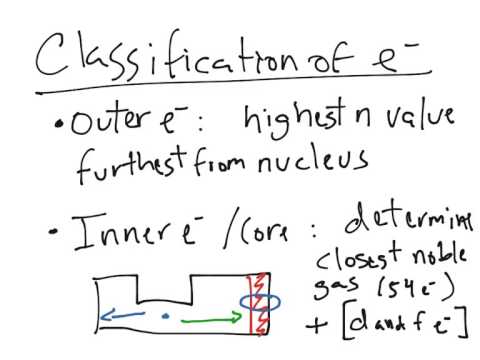 Classification of e⁻
• Outer e⁻: highest n value
furthest from nucleus
• Inner e⁻ / core : determine
closest noble
gas (54 e⁻)
+ [d and f e⁻]